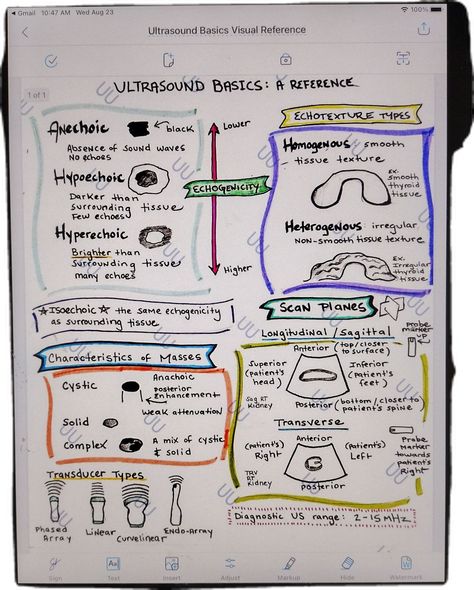 Gmail 10:47 AM Wed Aug 23
100%
Ultrasound Basics Visual Reference
1 of 1
ULTRASOUND BASICS: A REFERENCE
Anechoic
black
Absence of sound waves
No echoes
Hypoechoic
Darker than
surrounding tissue
Few echoes
Hyperechoic
Brighter than
surrounding tissue
many echoes
Lower
ECHOGENICITY
Higher
ECHOTEXTURE TYPES
Homogenous: smooth
tissue texture
Ex:
Smooth
thyroid
tissue
Heterogenous: irregular
NON-smooth tissue texture
Ex.
Irregular
thyroid
tissue
Isoechoic the same echogenicity
as surrounding tissue
SCAN PLANES
Longitudinal/Sagittal
Probe
marker
UP
Anterior (top/closer
to surface)
Superior
(patient's
head)
Inferior
(patient's
feet)
Sag RT
Kidney
Posterior (bottom/closer to
patient's spine
Transverse
Anterior
(patient's)
Right
(patient's)
Left
Probe
Marker
towards
patient's
Right
TRV
RT
Kidney
Posterior
Characteristics of Masses
Cystic
Anachoic
posterior
Enhancement
Weak attenuation
Solid
Complex
A mix of cystic
& solid
Transducer Types
Phased
Array
Linear
Curvelinear
Endo-Array
Diagnostic US range: 2-15 MHz
UU
Sign
Text
Insert
Adjust
Markup
Hide
Watermark